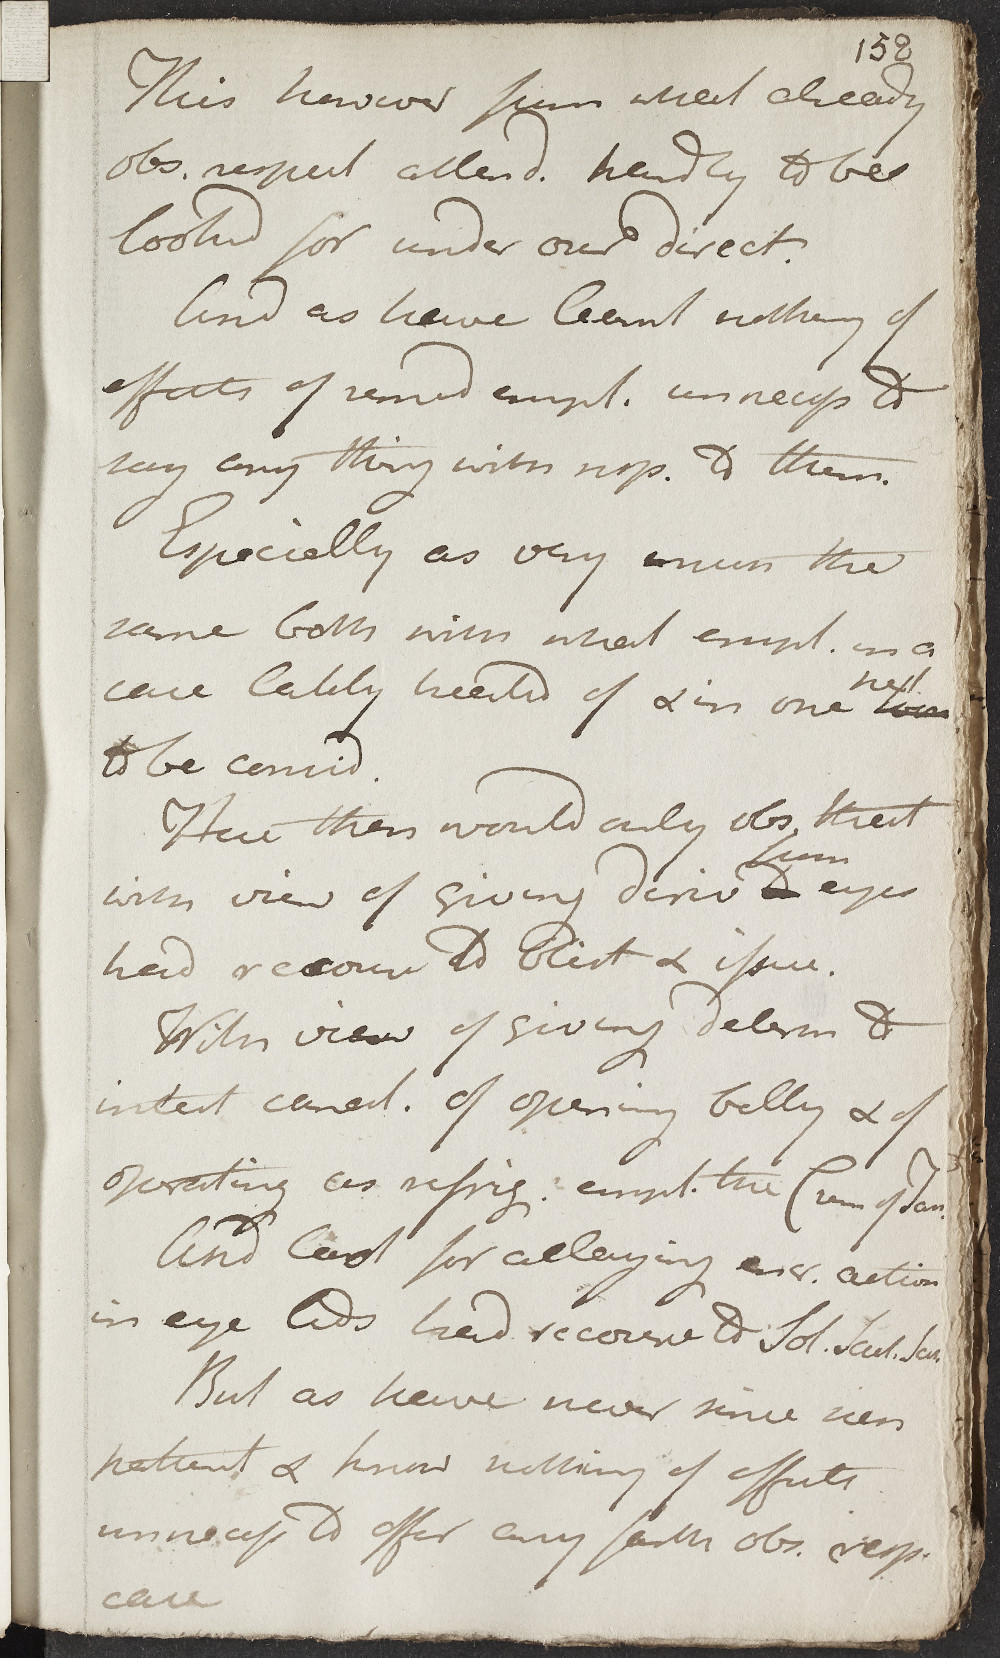 158
This however from what already
obs. respect attend. hardly to be
looked for under our direct.
And as have learnt nothing of
effects of remed empl. unnecess to
say any thing with resp. to them.
Especially as very much the
same both with what empl. in a
case lately treated of & in one next
to be consid.
Here then would only obs. that
with view of giving deriv from eyes
had recourse to blist & issue.
With view of giving determ to
intest canal. of opening belly & of
operating as refrig. empl. the Crem of Tar.
And last for allaying incr. action
in eye lids had recourse to Sol. Sacch. Sat.
But as have never since seen
patient & know nothing of effects
unnecess to offer any farth obs. resp.
case